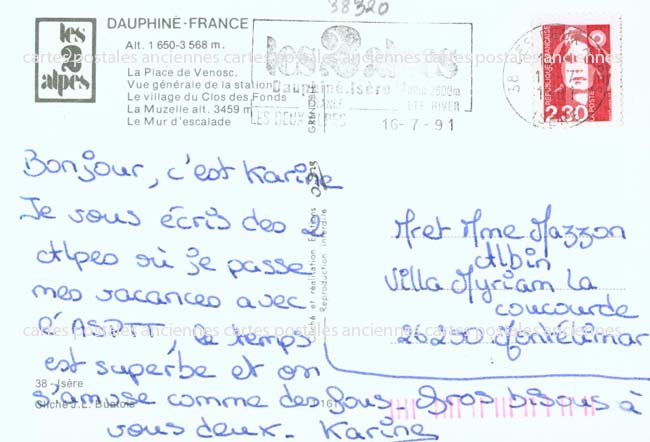 38320
DAUPHINÉ - FRANCE
Alt. 1 650-3 568 m.
les 2 alpes
La Place de Venosc.
Vue générale de la station
Le village du Clos des Fonds
La Muzelle alt. 3459 m
Le Mur d'escalade
les 2 alpes
Dauphiné.Isère
3600m
ÉTÉ HIVER
LES DEUX ALPES
16-7-91
38
ISÈRE
RÉPUBLIQUE FRANÇAISE
LA POSTE
2,30
cartes postales anciennes cartes postales anciennes cartes postales anciennes
Bonjour, c'est Karine
Je vous écris des 2
Alpes où je passe
mes vacances avec
l'ASPTT, le temps
est superbe et on
s'amuse comme des fous. Gros bisous à
vous deux. Karine
GRENOBLE
Cliché et réalisation Editions
Reproduction interdite
M et Mme Mazzon
Albin
Villa Myriam La
coucourde
26230 Montélimar
cartes postales anciennes cartes postales anciennes cartes postales anciennes
38 - Isère
Cliché J.L.